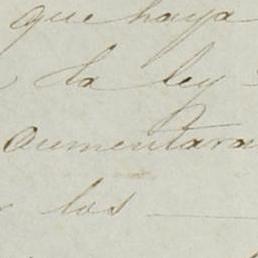 que haya
la ley
aumentara
los